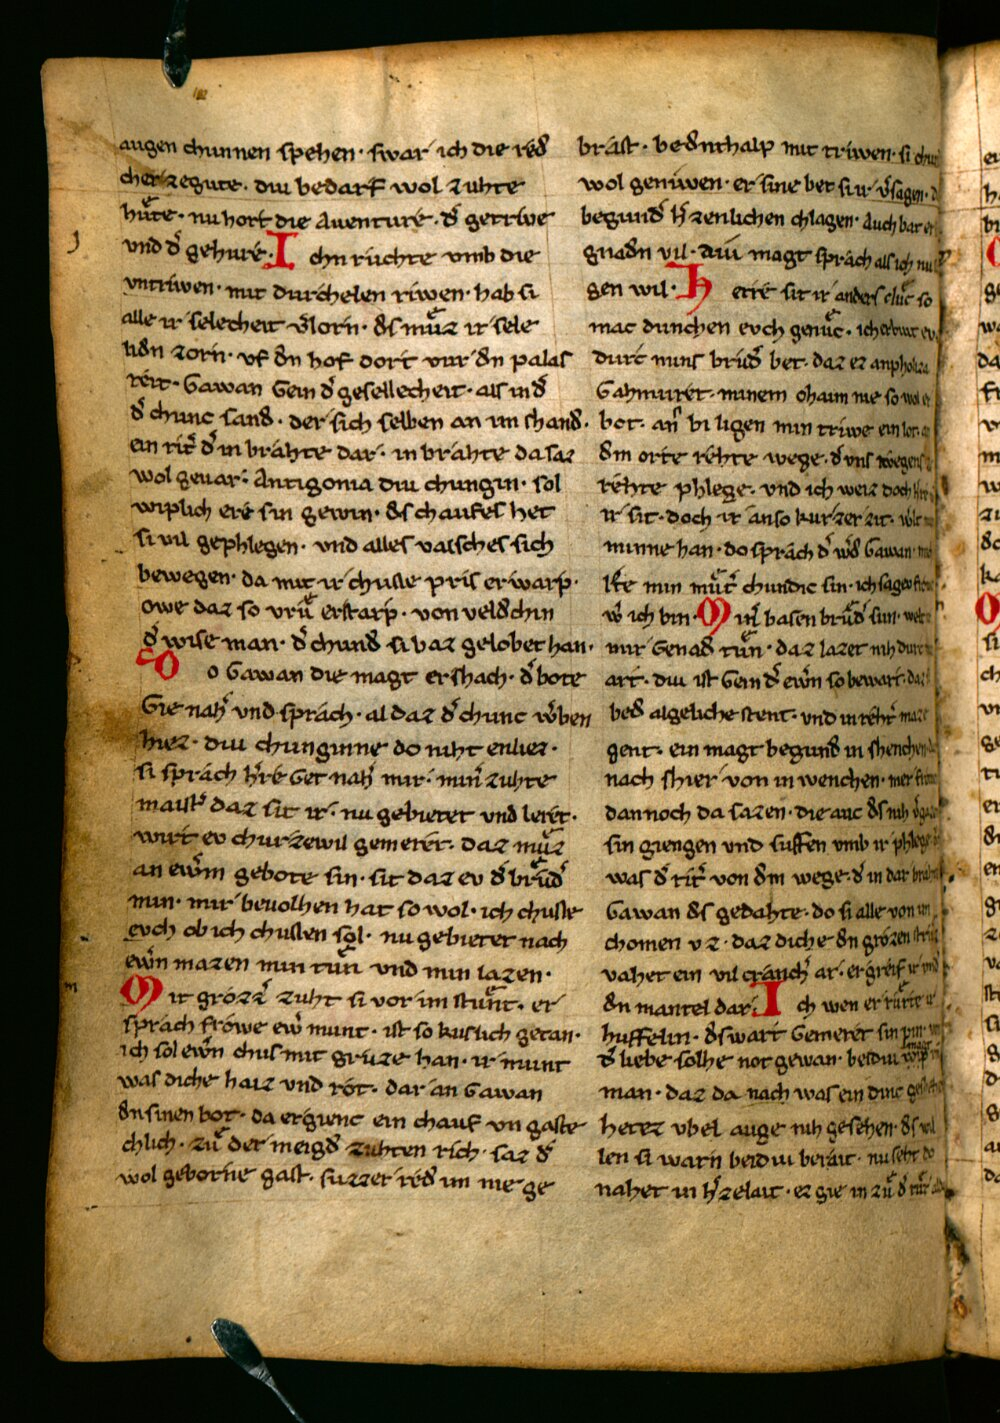 augen chunnen spehen · swar ich die red̄
cher zegute · diu bedarf wol zuhte
hůte · nu hort die Aventure · d̄ getriwe
und d̄ gehure · I chn rŭchte umb die
untriwen · mit durchelen riwen · hab si
alle ir selecheit v̄lorn · d̄s mŭz ir sele
lid̄n zorn · uf d̄n hof dort vur d̄n palas
reit · Gawan Gein d̄ gesellecheit · als in d̄
d̄ chunc sand̄ · der sich selben an im shand̄ ·
ein rit̄ d̄ in brâhte dar · in brâhte da saz
wol gevar · Antigonia diu chungin · sol
wiplich ere sin gewin · d̄s chaufes het
si vil gephlegen · und alles valsches sich
bewegen · da mit ir chuste pris erwarp ·
owe daz so vrů erstarp · von veld̄chin
d̄ wise man · d̄ chund̄ si baz gelobet han ·
D o Gawan die magt ershach · d̄ bote
Gie nah̄ und sprach · al daz d̄ chunc w̄ben
hiez · diu chunginne do niht enliez ·
si sprâch h̄re Get nah̄ mir · min̄ zuhte
maist̄ daz sit ir · nu gebietet und leret ·
wirt ev churzewil gemeret · daz mŭz
an ew̄m gebote sin · sit daz ev d̄ brůd̄
min · mir bevolhen hat so wol · ich chuste
euch ob ich chusten sol · nu gebietet nach
ew̄n mazen min tůn und min lazen ·
M it grozz̄ zuht si vor im stŭnt · er
sprach frowe ew̄ munt · ist so kuslich getan ·
ich sol ew̄n chus mit gruze han · ir munt
was diche haiz und rot · dar an Gawan
d̄n sinen bot · da ergienc ein chauf un gaste
chlich · zů der meigd̄ zuhten rich · saz d̄
wol geborne gast · suzzer red̄ im nie ge
brast · bed̄nthalp mit triwen · si
wol geniwen · er sine bet si ir v̄sagen ·
begund̄ h̄zenlichen chlagen · Auch bat er
gnad̄n vil · diu magt sprach als ich
gen wil · H erre sit ir anders chluc so
mac dunchen euch genŭc · ich
durc mins brůd̄ bet · daz ez
Gahmuret · minem ohaim nie so wol
bot · an̄ bi ligen min triwe ein lot ·
d̄m orte rehte wege · d̄ uns wegens
rehte phlege · und ich weiz doch
ir sit · doch ir an so kurzer zit ·
minne han · do sprach d̄ w̄d̄ Gawan ·
min můt̄ chundic sin · ich sage
w̄ ich bin · M in̄ basen brůd̄ sun ·
mir Genad̄ tůn · daz lazet nih durch
art · diu ist Gein d̄ ew̄n so bewart · daz
bed̄ algeliche stent · und in reht̄ maze
gent · ein magt begund̄ in shenchen
nach shier von in wenchen · mer
dannoch da sazen · die auc d̄s nih
sin giengen und suffen umb ir phlege
was d̄ rit̄ von d̄m wege · d̄ in dar brahte
Gawan d̄s gedahte · do si alle von im
chomen uz · daz diche d̄n grozen
vahet ein vil cranch̄ ar · er greif
d̄n mantel dar · I ch wen er rŭrte ir
huffelin · d̄s wart Gemeret sin pin ·
d̄ liebe solhe not gewan · beidiu
man · daz da nach was ein dinc
hetez ubel auge nih gesehen · d̄s
len si warn beidiu berait · nu seht do
nahet in h̄zelait · ez gie in zů